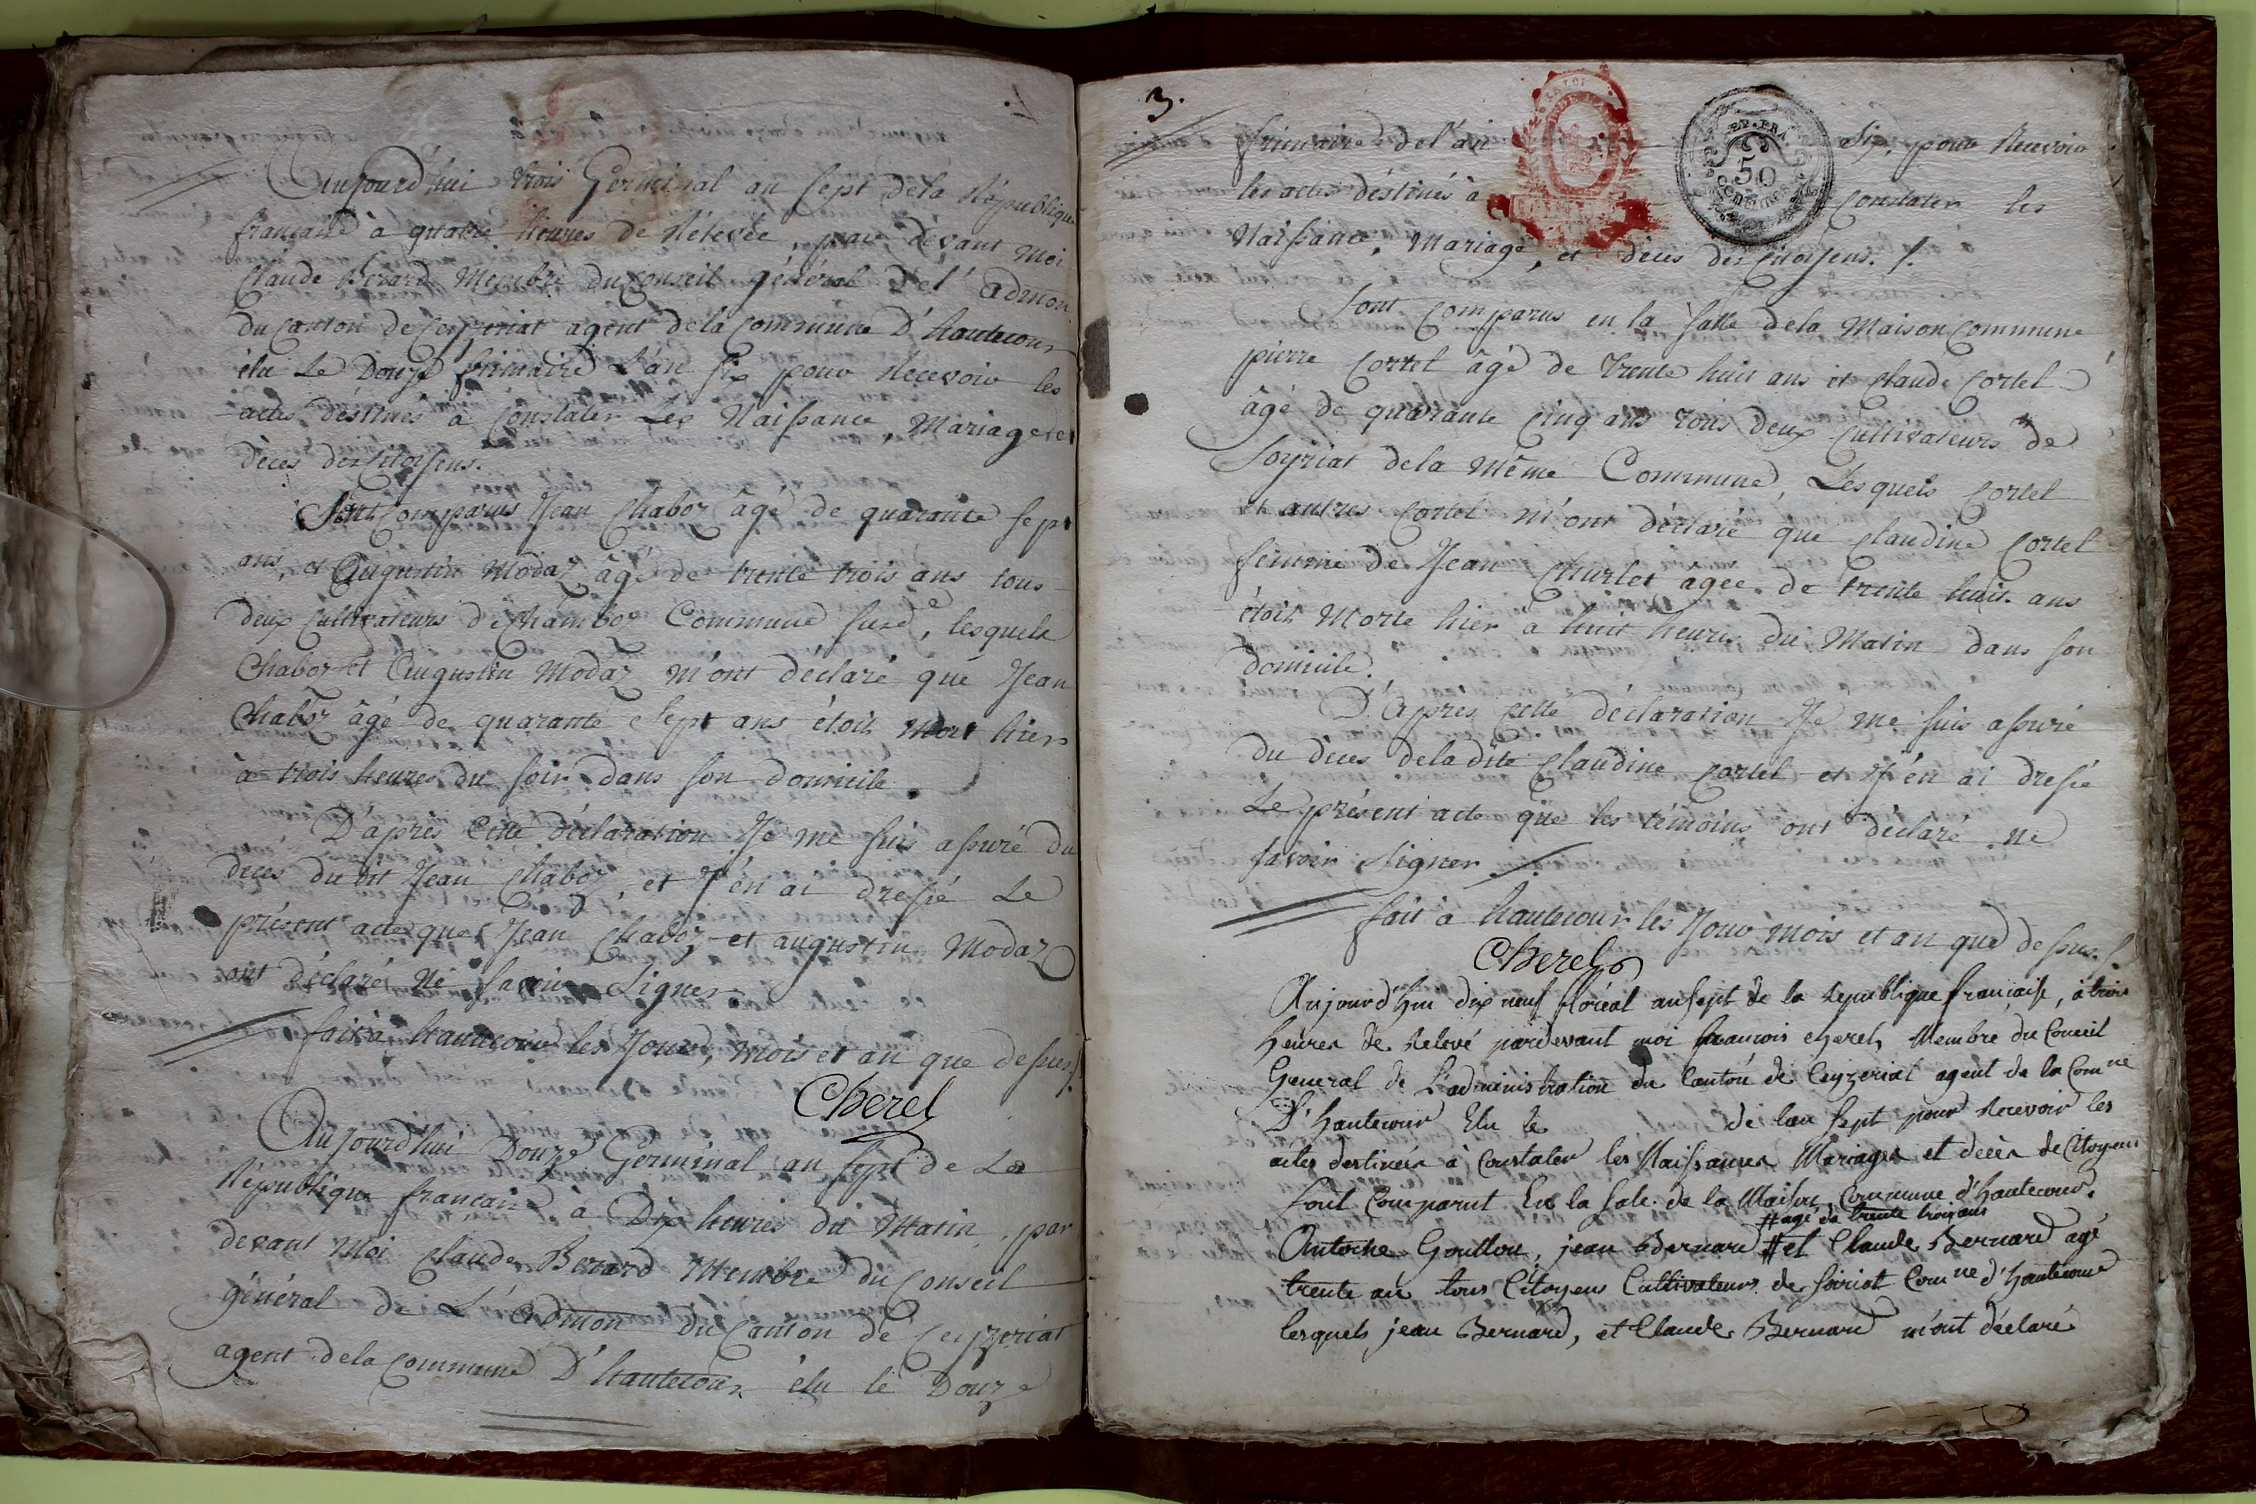 Aujourd'hui trois Germinal an sept de la République
francaise à quatre heures de Rélevée, par devant Moi
Claude Bérard Membre du Conseil général de l'admon
du Canton de Ceyzeriat agent de la Commune D'hautecour
élu Le Douze frimaire L'an six pour Recevoir les
actes déstinés à Constater Les Naissance, Mariage et
Décès des Citoyens.
Sont Comparus Jean Chaboz âgé de quarante sept
ans, et Augustin Modaz âgé de trente trois ans tous
deux Cultivateurs de Chamboz Commune susd.e, lesquels
Chaboz et Augustin Modaz m'ont déclaré que Jean
Chaboz âgé de quarante sept ans étoit Mort hier
à trois heures du soir dans son domicile.
D'après Cette déclaration Je me suis assuré du
deces du dit Jean Chaboz, et J'én ai dressé Le
présent acte que Jean Chaboz et augustin Modaz
ont déclaré Ne savoir Signer
fait à hautecour les Jour, mois et an que dessus ./.
Cherel
Aujourd'hui Douze Germinal an sept de La
République francaise, à Dix heures du Matin, par
devant Moi Claude Berard Membre du Conseil
général de L'admon du Canton de Ceyzeriat
agent de la Commune D'hautecour élu le Douze
3.
frimaire de l'an six, pour Recevoir
les actes déstinés à Constater les
Naissance, Mariage, et décès des Citoyens. /.
EP. FRA.
50
CENTIMES
Sont Comparus en la salle de la Maison Commune
pierre Cortel âgé de trente huit ans et Claude Cortel
âgé de quarante Cinq ans tous deux Cultivateurs de
Soyriat de la même Commune, Lesquels Cortel
et autres Cortel m'ont déclaré que Claudine Cortel
femme de Jean Churlet agée de trente huit ans
étoit Morte hier à huit heures du Matin dans son
domicile.
D'après Cette déclaration Je me suis assuré
du deces de la dite Claudine Cortel et J'én ai dressé
Le présent acte que les témoins ont déclaré ne
savoir Signer ./.
fait à hautecour les Jour mois et an que dessus. /.
Cherel
Aujourd'hui dix neuf floreal an sept de la Republique francaise, à trois
heures de Relevé pardevant moi francois cherel, Membre du Conseil
General de L'administration du Canton de Ceyzeriat agent de la Comne
D'hautecour Elu le de lan sept pour Recevoir les
actes destinéés à Constater les Naissances Mariages et decès de Citoyens
sont Comparut En la sale de la Maison Commune d'hautecour.
# agé de trente trois ans
Antoine Goutton, jean Bernard # et Claude Bernard agé
trente an tous Citoyens Cultivateurs de soiriat Comne d'hautecour
lesquels jean Bernard, et Claude Bernard m'ont déclaré